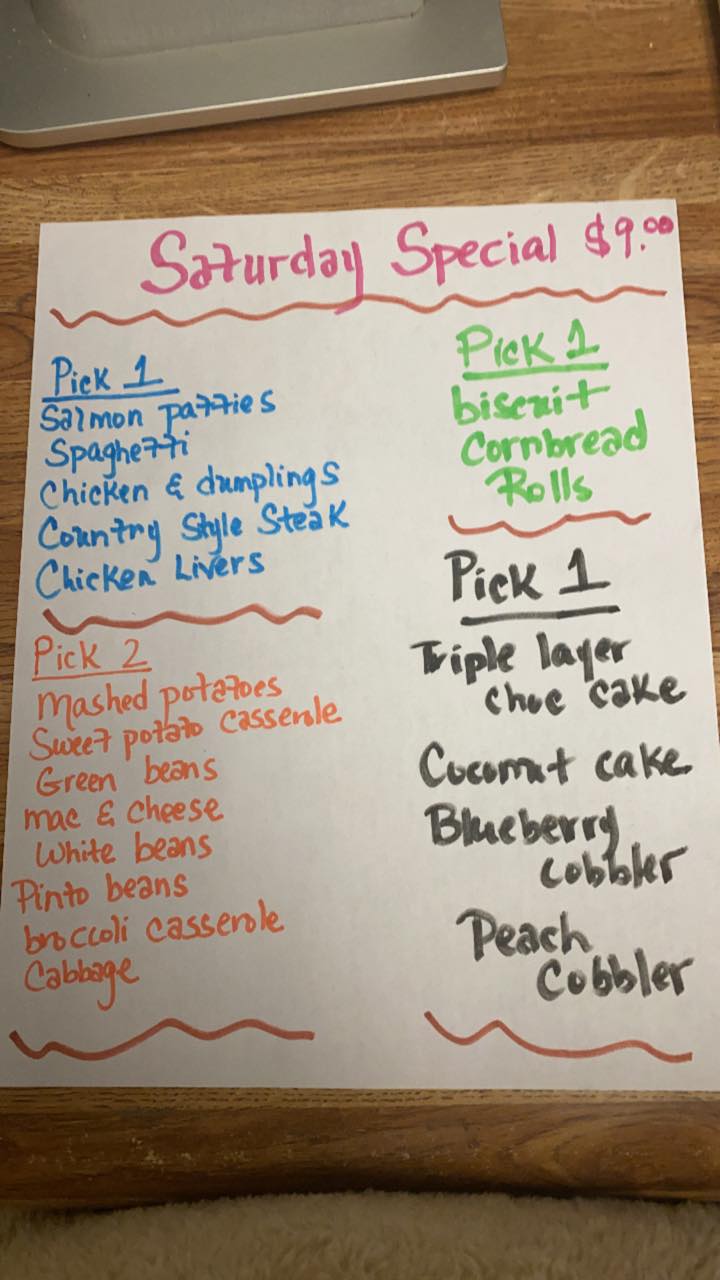 Saturday Special $9.00
Pick 1
Salmon patties
Spaghetti
Chicken & dumplings
Country Style Steak
Chicken Livers
Pick 2
Mashed potatoes
Sweet potato casserole
Green beans
mac & cheese
White beans
Pinto beans
broccoli casserole
Cabbage
Pick 1
biscuit
Cornbread
Rolls
Pick 1
Triple layer
choc cake
Coconut cake
Blueberry
cobbler
Peach
Cobbler